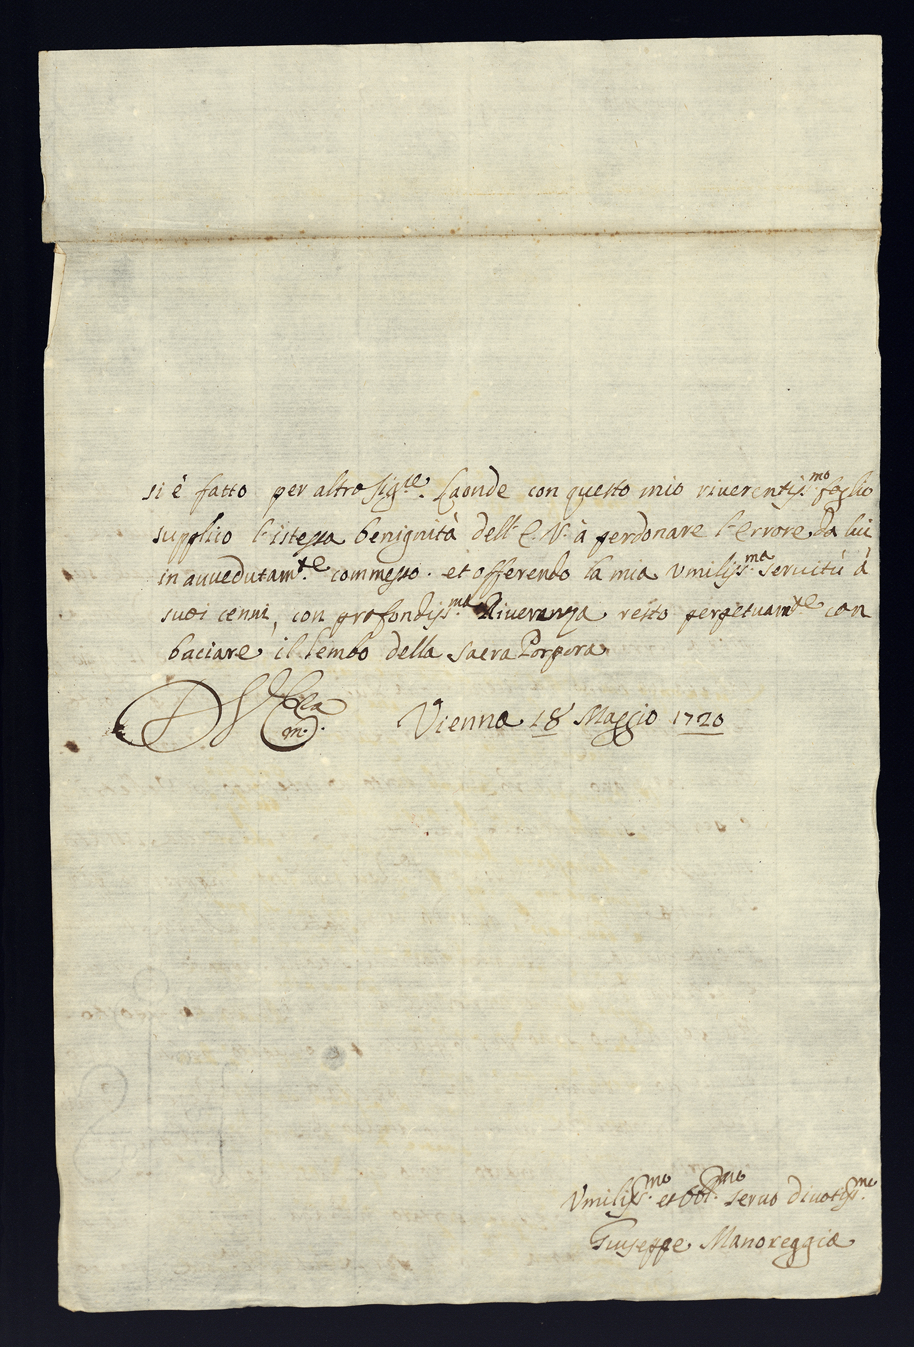 si è fatto per altro sig.re. Laonde con questo mio riverentiss.mo foglio
supplico l'istessa benignità dell' E. V. à perdonare l'Errore da lui
inavvedutam.te commesso. et offerendo la mia Umiliss.ma servitù à
suoi cenni, con profondiss.ma Riverenza resto perpetuam.te con
baciare il lembo della sacra Porpora
Vienna 18 Maggio 1720
Umiliss.mo et obl.mo servo divotiss.mo
Giuseppe Manoreggia